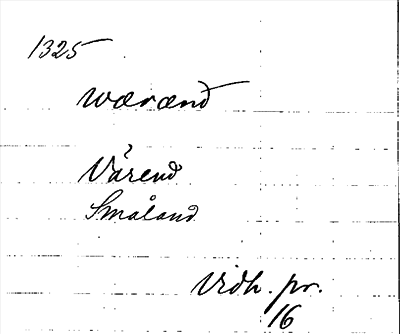 1325
wærænd
Värend
Småland
Vidh. pr.
16